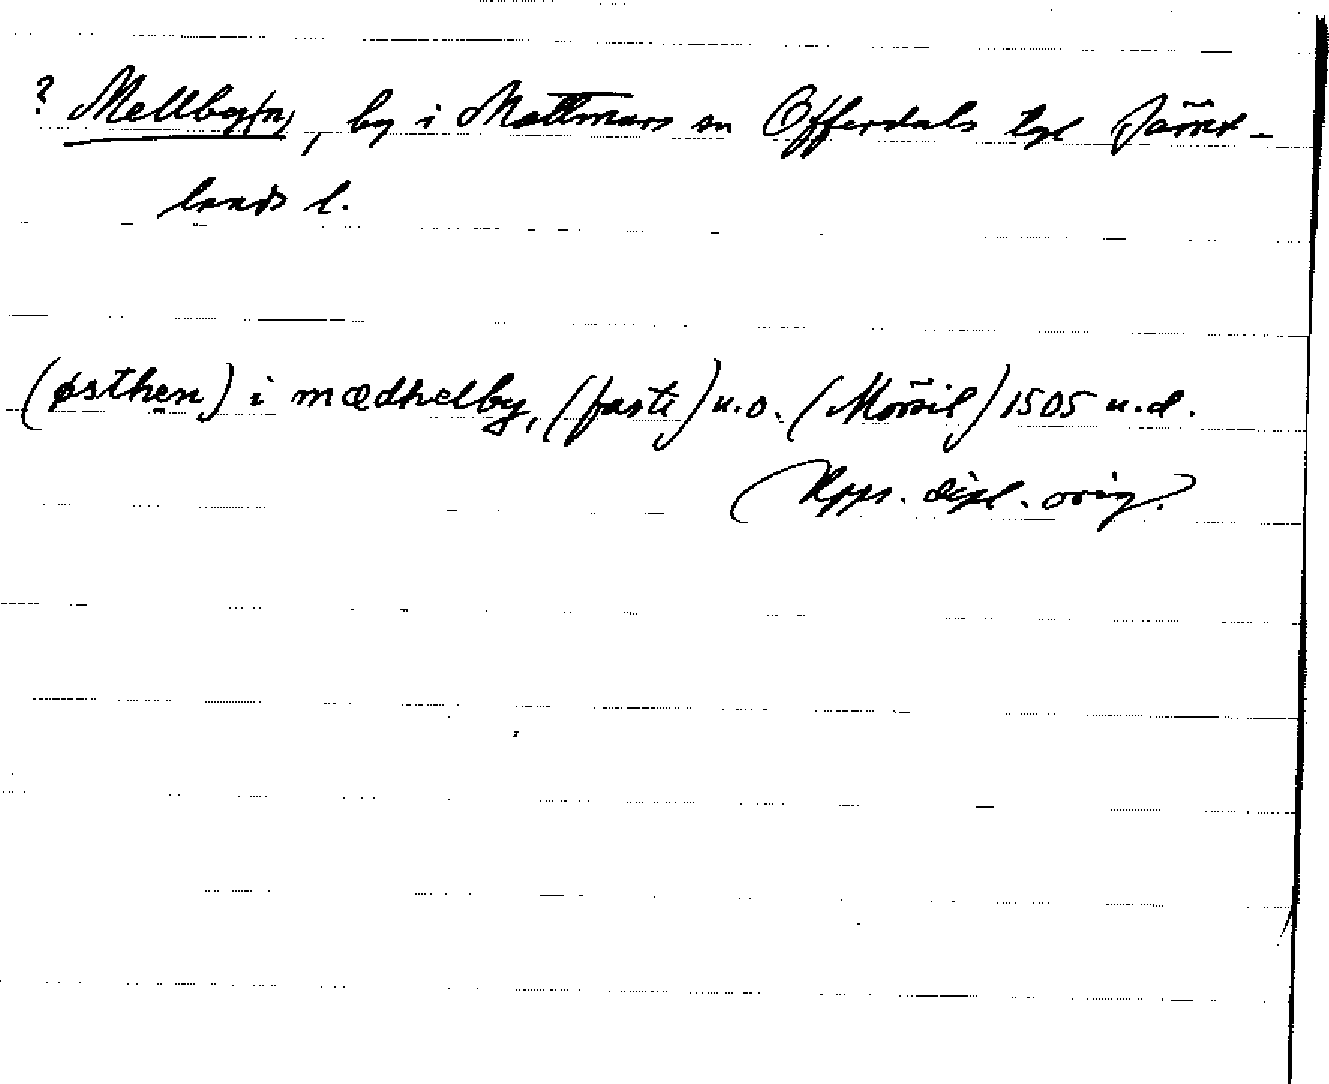 ? Mellbyn, by i Mattmars sn Offerdals tgl Jämt-
lands l.
(østhen) i mædhelby, (faste) u.o. (Mörsil) 1505 u.d.
(Upps. dipl. orig.)